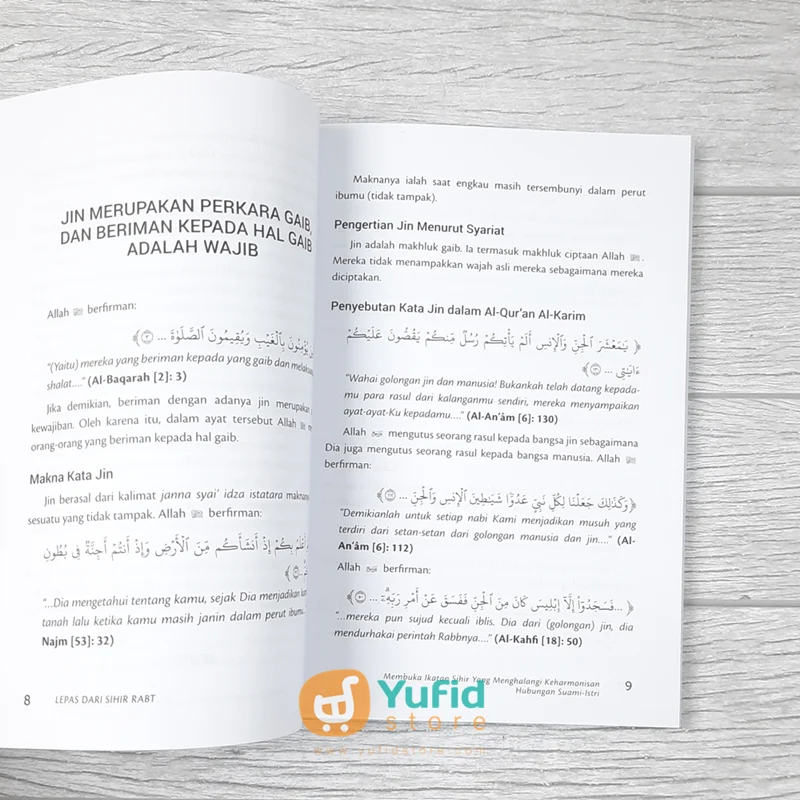 JIN MERUPAKAN PERKARA GAIB,
DAN BERIMAN KEPADA HAL GAIB
ADALAH WAJIB
Allah ﷻ berfirman:
يُؤْمِنُونَ بِٱلْغَيْبِ وَيُقِيمُونَ ٱلصَّلَوٰةَ ... ﴿٣﴾
"(Yaitu) mereka yang beriman kepada yang gaib dan
shalat...." (Al-Baqarah [2]: 3)
Jika demikian, beriman dengan adanya jin merupakan
kewajiban. Oleh karena itu, dalam ayat tersebut Allah ﷻ
orang-orang yang beriman kepada hal gaib.
Makna Kata Jin
Jin berasal dari kalimat janna syai' idza istatara
sesuatu yang tidak tampak. Allah ﷻ berfirman:
أَعْلَمُ بِكُمْ إِذْ أَنشَأَكُم مِّنَ ٱلْأَرْضِ وَإِذْ أَنتُمْ أَجِنَّةٌ فِى بُطُونِ
"...Dia mengetahui tentang kamu, sejak Dia menjadikan
tanah lalu ketika kamu masih janin dalam perut
Najm [53]: 32)
8 LEPAS DARI SIHIR RABT
Maknanya ialah saat engkau masih tersembunyi dalam perut
ibumu (tidak tampak).
Pengertian Jin Menurut Syariat
Jin adalah makhluk gaib. Ia termasuk makhluk ciptaan Allah ﷻ.
Mereka tidak menampakkan wajah asli mereka sebagaimana mereka
diciptakan.
Penyebutan Kata Jin dalam Al-Qur'an Al-Karim
﴿ يَٰمَعْشَرَ ٱلْجِنِّ وَٱلْإِنسِ أَلَمْ يَأْتِكُمْ رُسُلٌ مِّنكُمْ يَقُصُّونَ عَلَيْكُمْ
ءَايَٰتِى ... ﴾
"Wahai golongan jin dan manusia! Bukankah telah datang kepada-
mu para rasul dari kalanganmu sendiri, mereka menyampaikan
ayat-ayat-Ku kepadamu...." (Al-An'âm [6]: 130)
Allah ﷻ mengutus seorang rasul kepada bangsa jin sebagaimana
Dia juga mengutus seorang rasul kepada bangsa manusia. Allah ﷻ
berfirman:
﴿ وَكَذَٰلِكَ جَعَلْنَا لِكُلِّ نَبِىٍّ عَدُوًّا شَيَٰطِينَ ٱلْإِنسِ وَٱلْجِنِّ ... ﴾
"Demikianlah untuk setiap nabi Kami menjadikan musuh yang
terdiri dari setan-setan dari golongan manusia dan jin...." (Al-
An'âm [6]: 112)
Allah ﷻ berfirman:
﴿ ...فَسَجَدُوٓا۟ إِلَّآ إِبْلِيسَ كَانَ مِنَ ٱلْجِنِّ فَفَسَقَ عَنْ أَمْرِ رَبِّهِۦٓ ... ﴾
"...mereka pun sujud kecuali iblis. Dia dari (golongan) jin, dia
mendurhakai perintah Rabbnya...." (Al-Kahfi [18]: 50)
Membuka Ikatan Sihir Yang Menghalangi Keharmonisan
Hubungan Suami-Istri
9
Yufid
store
www.yufidstore.com